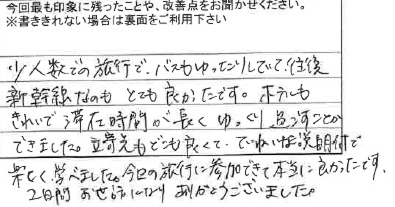 今回最も印象に残ったことや、改善点をお聞かせください。
※書ききれない場合は裏面をご利用下さい
少人数での旅行で、バスもゆったりしていて、往復
新幹線なのも とても良かったです。ホテルも
きれいで滞在時間が長く ゆっくり過すことが
できました。立寄先もどこも良くて、ていねいな説明付で
楽しく学べました。今回の旅行に参加できて本当に良かったです。
2日間 お世話になり ありがとうございました。